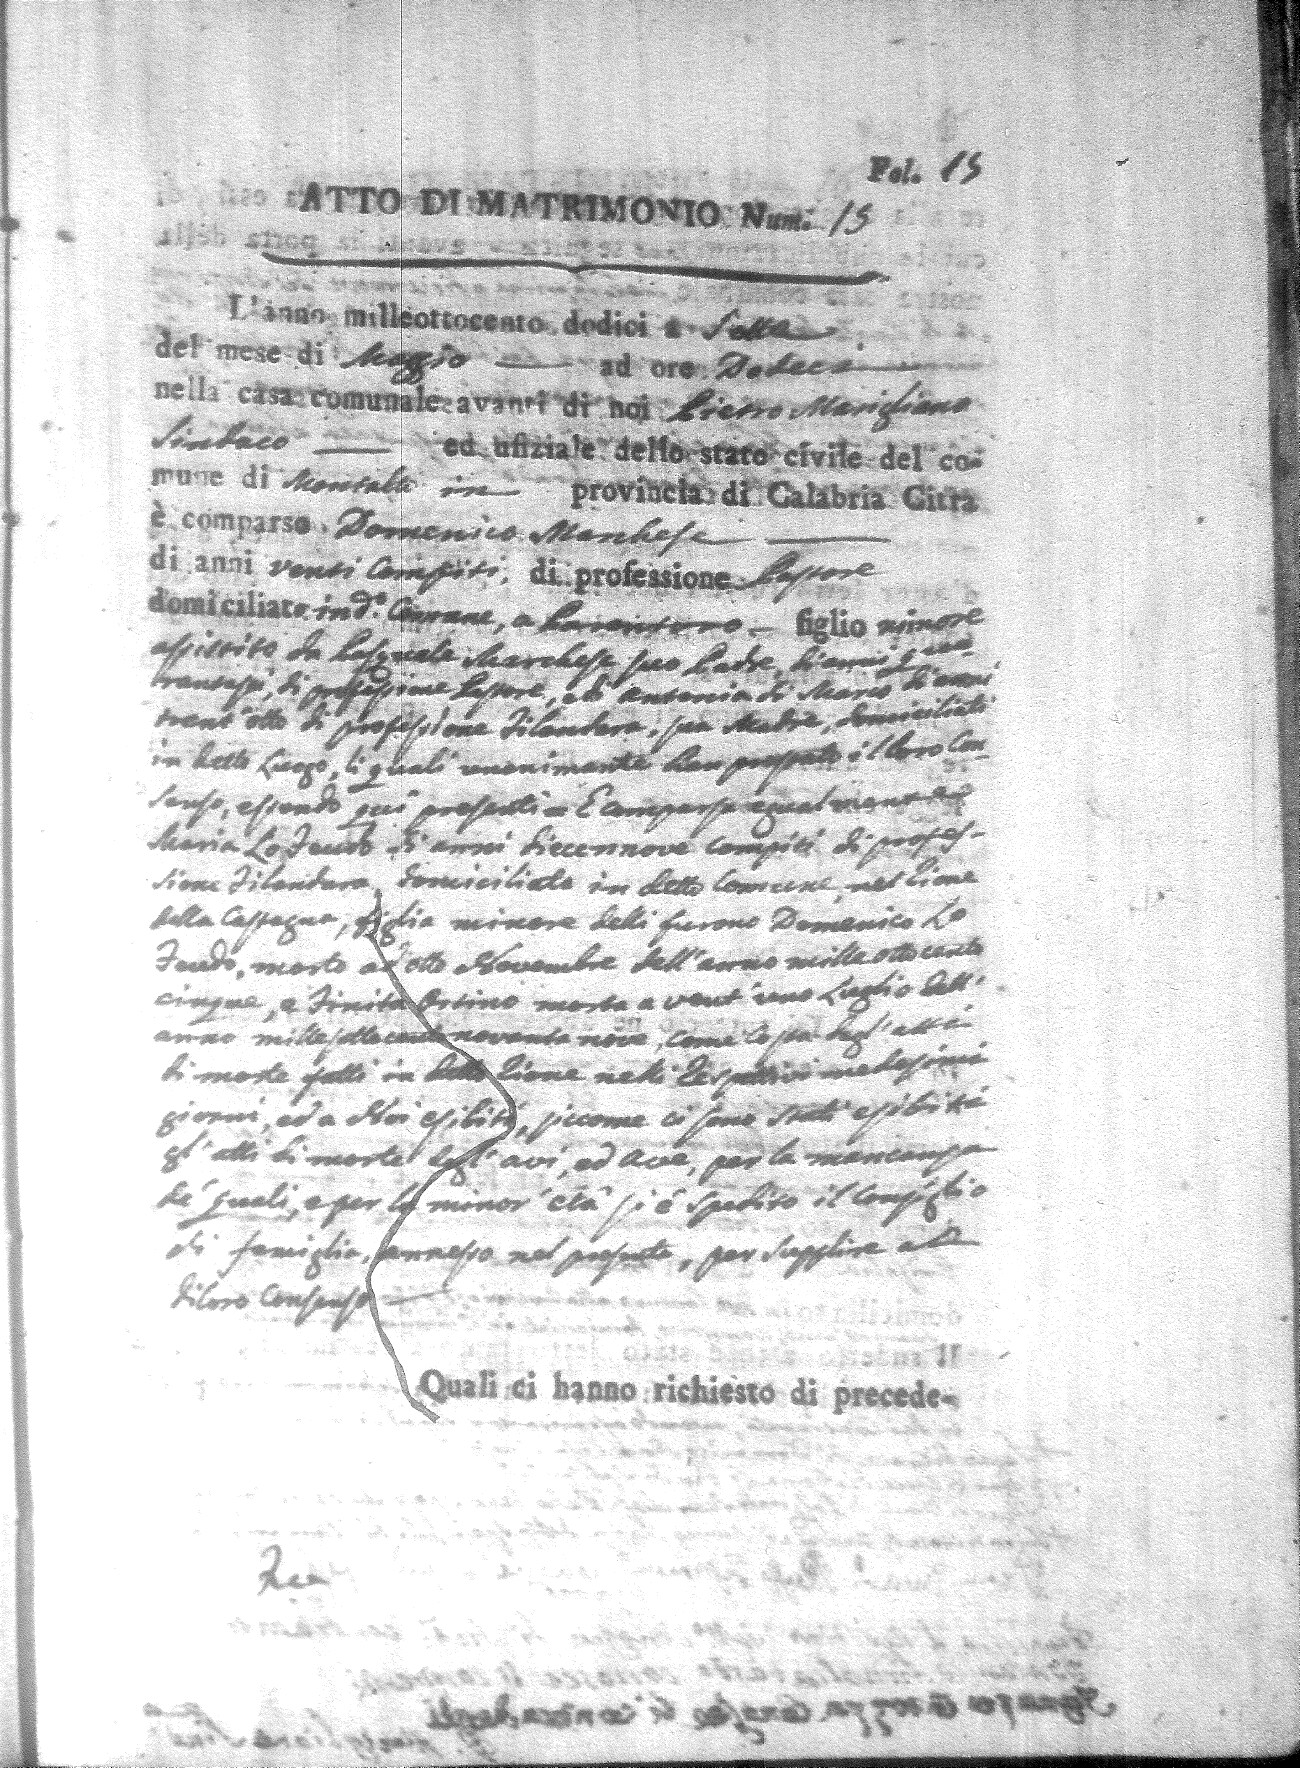 Fol. 15
ATTO DI MATRIMONIO Num. 15
L'anno milleottocento dodici a Sette
del mese di Maggio ad ore Dodeci
nella casa comunale avanti di noi Pietro Marigliano
Sindaco ed ufiziale dello stato civile del co-
mune di Montalto in provincia di Calabria Citra
è comparso Domenico Marchese
di anni venti compiti, di professione Pastore
domiciliato in d.º Comune, a figlio minore
assistito da Pasquale Marchese suo Padre, di anni qua-
rantasei, di professione Pastore, e di Antonia di Marco di anni
trent'otto di professione Filandara, sua Madre, domiciliati
in detto Luogo, li quali unanimante han prestato il loro Con-
senso, essendo quì presenti = È comparsa egualmente
Maria Lo Feudo di anni diecennove compiti di profes-
sione Filandara, domiciliata in detto Comune, nel Rione
della Caspagna, figlia minore delli furono Domenico Lo
Feudo, morto ad otto Novembre dell'anno mille ottocento
cinque, e Trinita Orsino morta a vent'uno Luglio dell'
anno millesettecento novanta nove, come costa dagl'atti
di morte fatti in detto Rione nelli rispettivi medesimi
giorni, ed a Noi esibiti, siccome ci sono stati esibiti
gl'atti di morte degl'avi, ed Ave, per la mancanza
de' quali, e per la minor' età si è spedito il Consiglio
di famiglia, annesso nel presente, per supplire al
di loro Consenso
Quali ci hanno richiesto di precede-